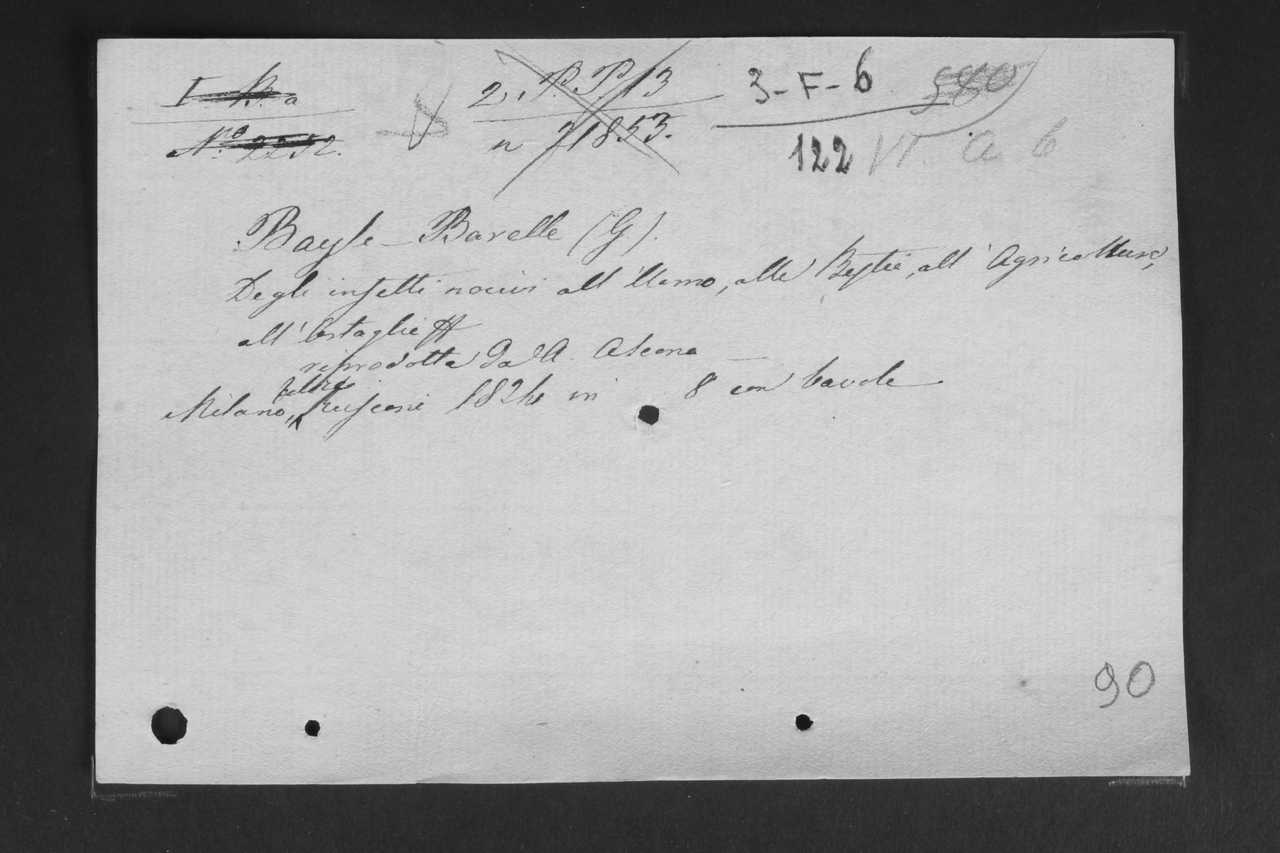 I R. a
N.ro 2252.
2. P. P. 13
n 71853.
3-F-6
580
122 VI. a 6
Bayle-Barelle (G).
Degli insetti nocivi all'Uomo, alle Bestie, all'Agricoltura,
all'
riprodotta da A. Ascona
Milano, Felice Rusconi 1824 in 8 con tavole
90